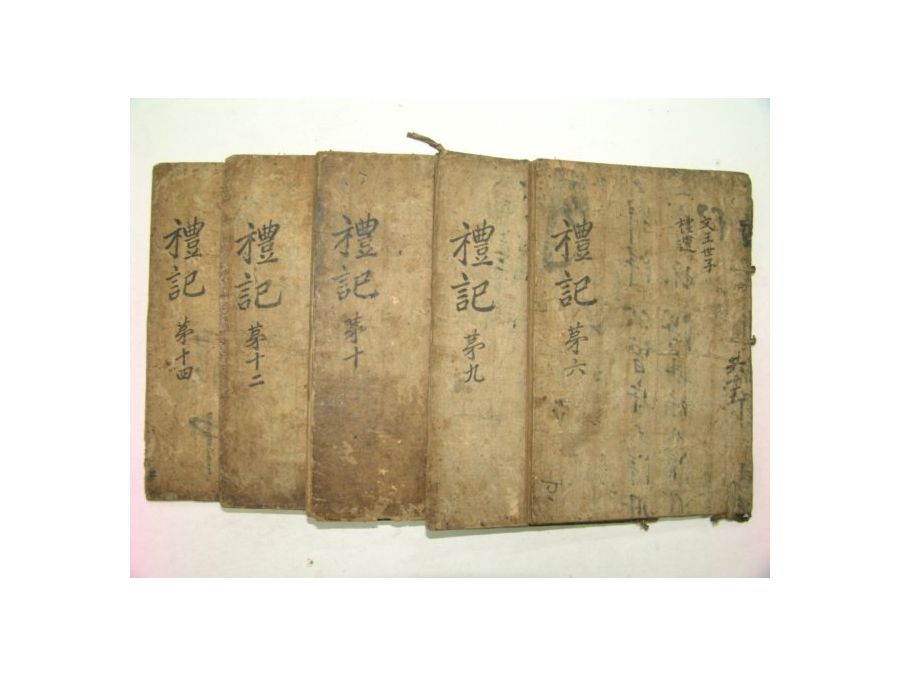 禮記 苐六
文王世子
禮運
禮記 苐九
禮記 苐十
禮記 苐十二
禮記 苐十四